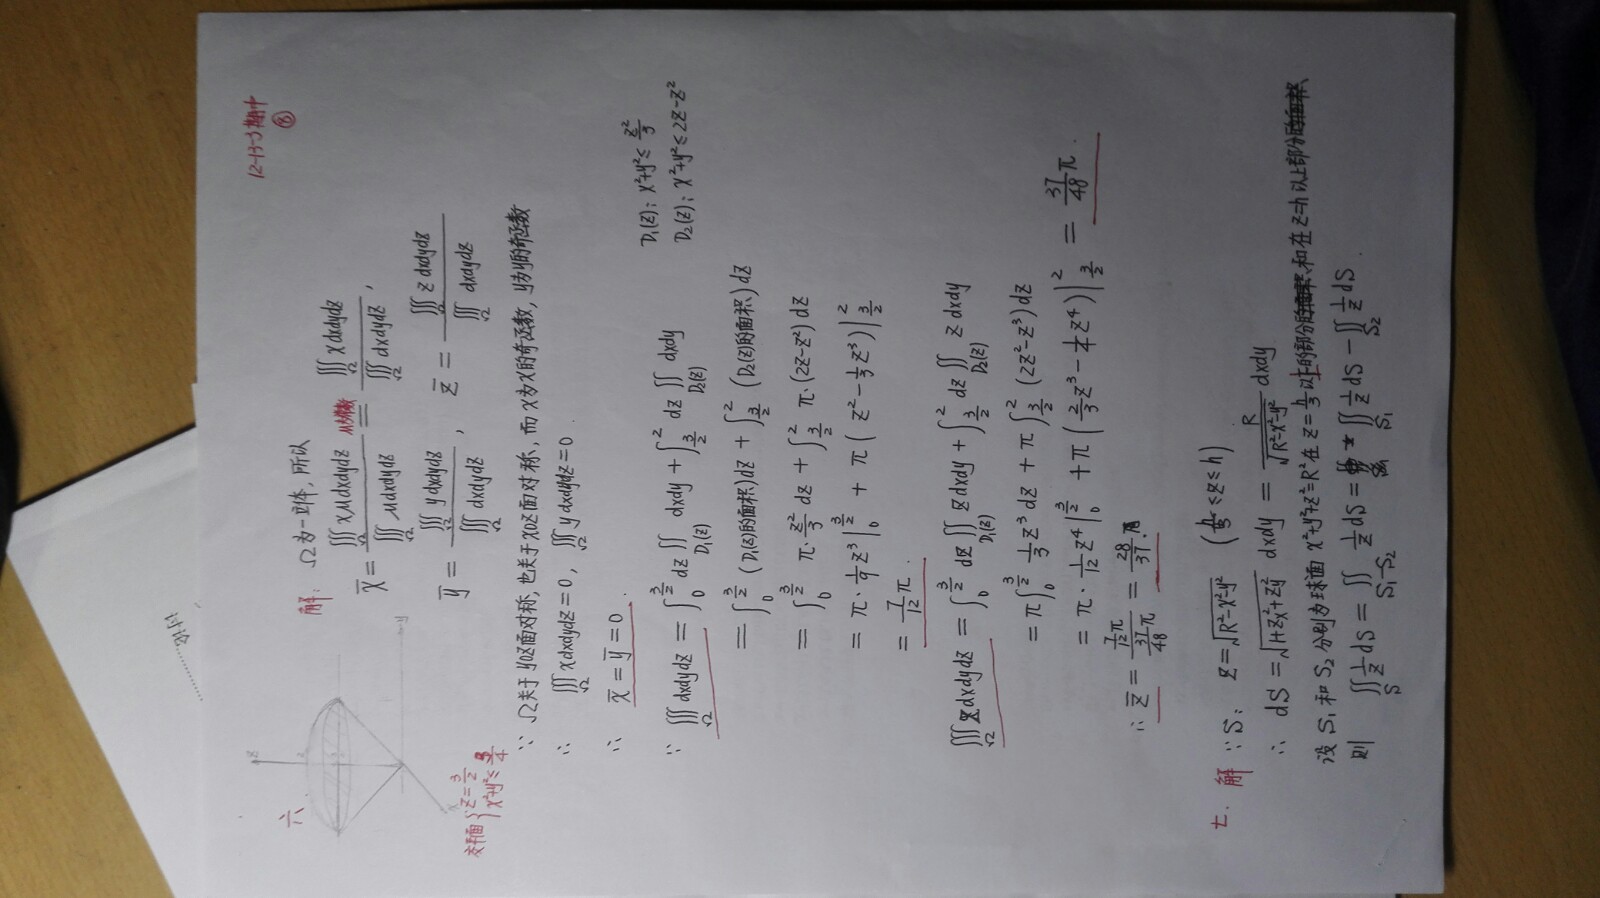 12-13-3期中
⑧
六.
解: Ω为一立体, 所以
x̄ = ∭_Ω xμdxdydz / ∭_Ω μdxdydz = ∭_Ω xdxdydz / ∭_Ω dxdydz ,
ȳ = ∭_Ω ydxdydz / ∭_Ω dxdydz , z̄ = ∭_Ω zdxdydz / ∭_Ω dxdydz
交平面 { z=3/2
x²+y²≤3/4
∵ Ω关于yoz面对称, 也关于xoz面对称, 而x为x的奇函数, y为y的奇函数
∴ ∭_Ω xdxdydz=0, ∭_Ω ydxdydz=0.
∴ x̄=ȳ=0.
D₁(z): x²+y²≤z²/3
D₂(z): x²+y²≤2z-z²
∵ ∭_Ω dxdydz = ∫_0^{3/2} dz ∬_{D₁(z)} dxdy + ∫_{3/2}^2 dz ∬_{D₂(z)} dxdy
= ∫_0^{3/2} (D₁(z)的面积)dz + ∫_{3/2}^2 (D₂(z)的面积)dz
= ∫_0^{3/2} π·z²/3 dz + ∫_{3/2}^2 π·(2z-z²)dz
= π·1/9 z³|_0^{3/2} + π(z²-1/3 z³)|_{3/2}^2
= 7/12 π.
∭_Ω zdxdydz = ∫_0^{3/2} dz ∬_{D₁(z)} zdxdy + ∫_{3/2}^2 dz ∬_{D₂(z)} z dxdy
= π∫_0^{3/2} 1/3 z³dz + π∫_{3/2}^2 (2z²-z³)dz
= π·1/12 z⁴|_0^{3/2} + π(2/3 z³-1/4 z⁴)|_{3/2}^2 = 37/48 π.
∴ z̄ = 7/12 π / 37/48 π = 28/37.
七. 解 ∵S: z=√(R²-x²-y²) (h/3≤z≤h)
∴ dS=√(1+zx²+zy²) dxdy = R/√(R²-x²-y²) dxdy
设S₁和S₂分别为球面x²+y²+z²=R²在z=h/3以上的部分和在z=h以上部分
则 ∬_S 1/z dS = ∬_{S₁-S₂} 1/z dS = ∬_{S₁} 1/z dS - ∬_{S₂} 1/z dS.